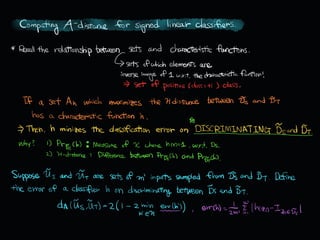 Computing A-distance for signed linear classifiers.
* Recall the relationship between sets and characteristic functions.
↳ sets of which elements are
inverse image of 1 w.r.t. the characteristic function!
⇒ set of positive (class 1) class.
If a set Aₕ which maximizes the H distance between D̃s and D̃T
has a characteristic function h.
⇒ Then, h minimizes the classification error on DISCRIMINATING D̃s and D̃T
why? 1) Pr_D̃s(h) : Measure of x where h(x)=1 w.r.t. Ds.
2) H-distance : Difference between Pr_D̃s(h) and Pr_D̃T(h).
Suppose Ũs and ŨT are sets of m' inputs sampled from D̃s and D̃T. Define
the error of a classifier h on discriminating between D̃s and D̃T.
d_A(Ũs, ŨT) = 2(1 - 2 min_{h'∈H} err(h')), err(h) = 1/2m' Σ |h(zi) - I_{zi∈Ũs}|